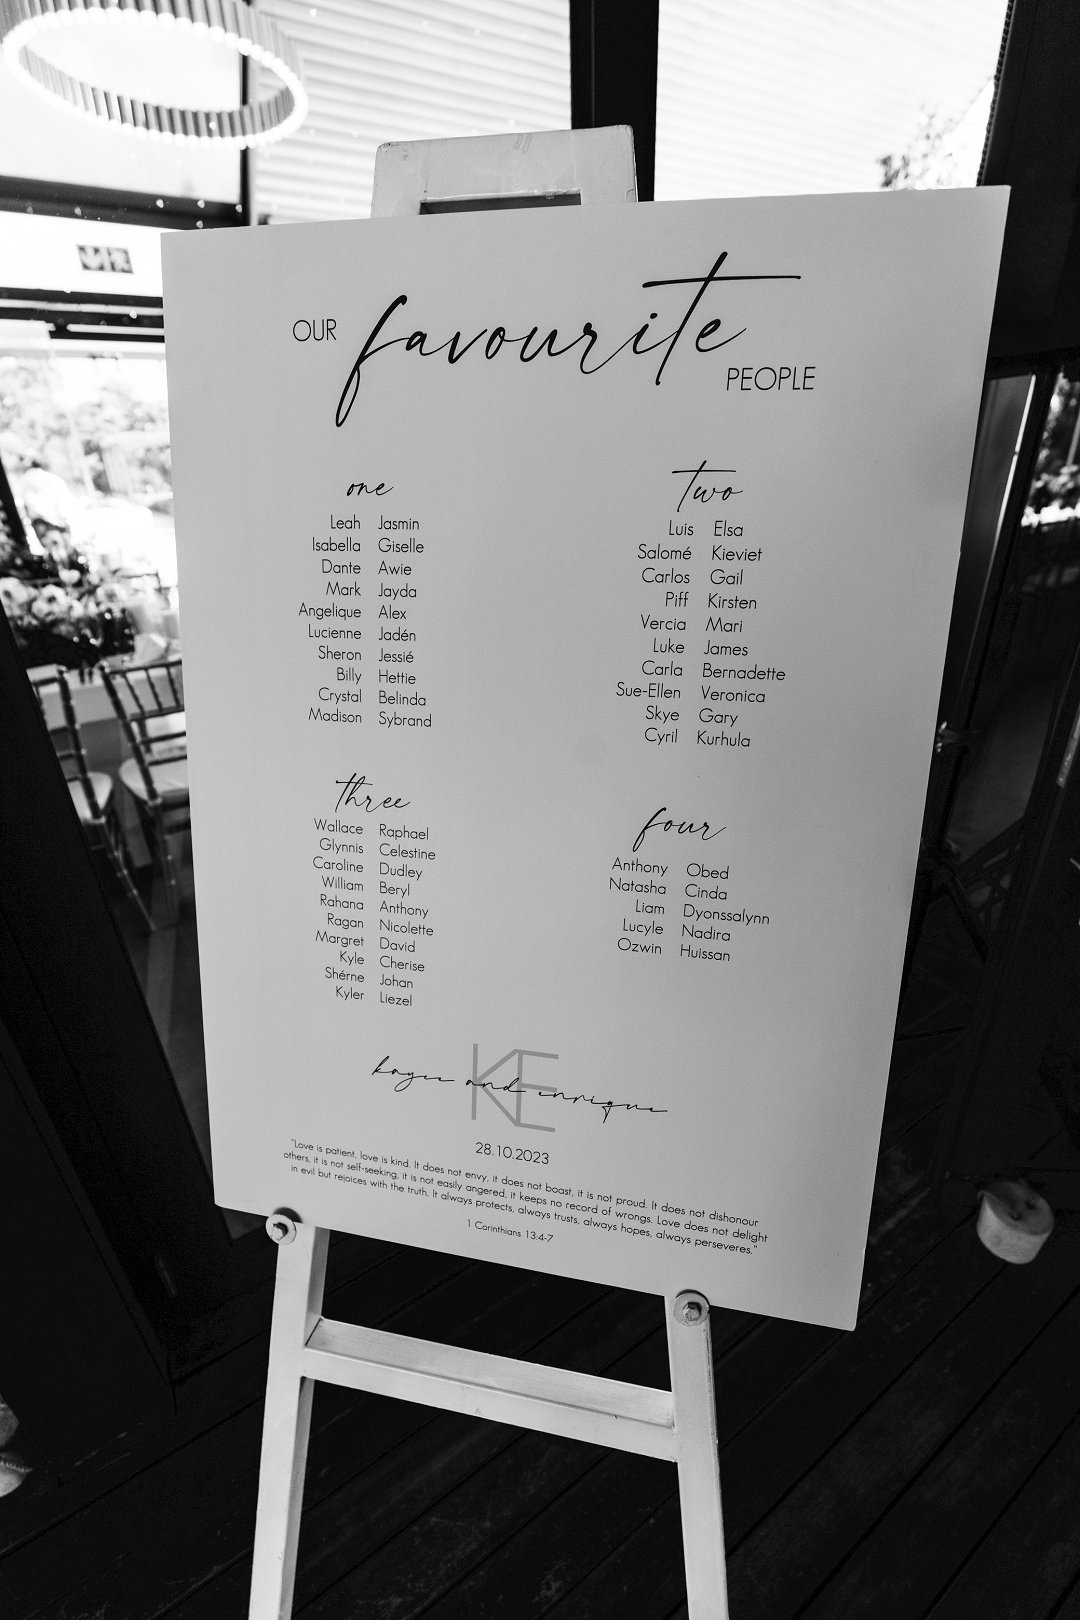 OUR favourite PEOPLE
one
Leah Jasmin
Isabella Giselle
Dante Awie
Mark Jayda
Angelique Alex
Lucienne Jadén
Sheron Jessié
Billy Hettie
Crystal Belinda
Madison Sybrand
two
Luis Elsa
Salomé Kieviet
Carlos Gail
Piff Kirsten
Vercia Mari
Luke James
Carla Bernadette
Sue-Ellen Veronica
Skye Gary
Cyril Kurhula
three
Wallace Raphael
Glynnis Celestine
Caroline Dudley
William Beryl
Rahana Anthony
Ragan Nicolette
Margret David
Kyle Cherise
Shérne Johan
Kyler Liezel
four
Anthony Obed
Natasha Cinda
Liam Dyonssalynn
Lucyle Nadira
Ozwin Huissan
KE
kaylee and enrique
28.10.2023
"Love is patient, love is kind. It does not envy, it does not boast, it is not proud. It does not dishonour
others, it is not self-seeking, it is not easily angered, it keeps no record of wrongs. Love does not delight
in evil but rejoices with the truth. It always protects, always trusts, always hopes, always perseveres."
1 Corinthians 13:4-7